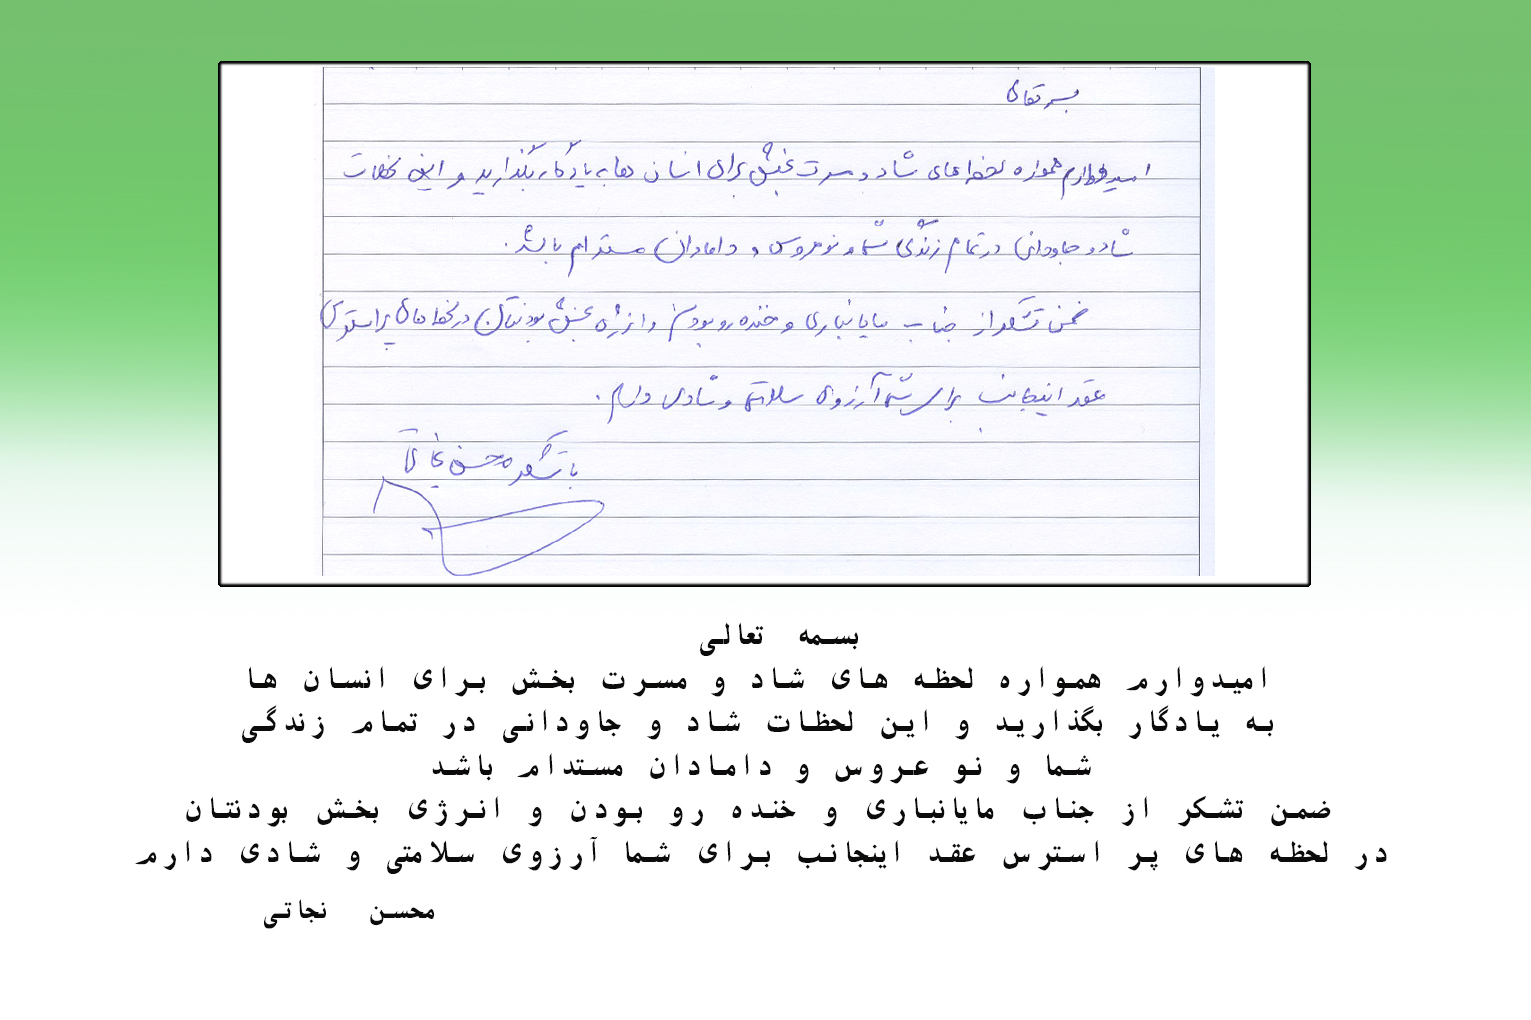 بسمه تعالی
امیدوارم همواره لحظه های شاد و مسرت بخش برای انسان ها به یادگار بگذارید و این لحظات
شاد و جاودانی در تمام زندگی شما و نو عروس و دامادان مستدام باشد.
ضمن تشکر از جناب مایانباری و خنده رو بودن و انرژی بخش بودنتان در لحظه های پر استرس
عقد اینجانب برای شما آرزوی سلامتی و شادی دارم.
با تشکر محسن نجاتی
بسمه تعالی
امیدوارم همواره لحظه های شاد و مسرت بخش برای انسان ها
به یادگار بگذارید و این لحظات شاد و جاودانی در تمام زندگی
شما و نو عروس و دامادان مستدام باشد
ضمن تشکر از جناب مایانباری و خنده رو بودن و انرژی بخش بودنتان
در لحظه های پر استرس عقد اینجانب برای شما آرزوی سلامتی و شادی دارم
محسن نجاتی